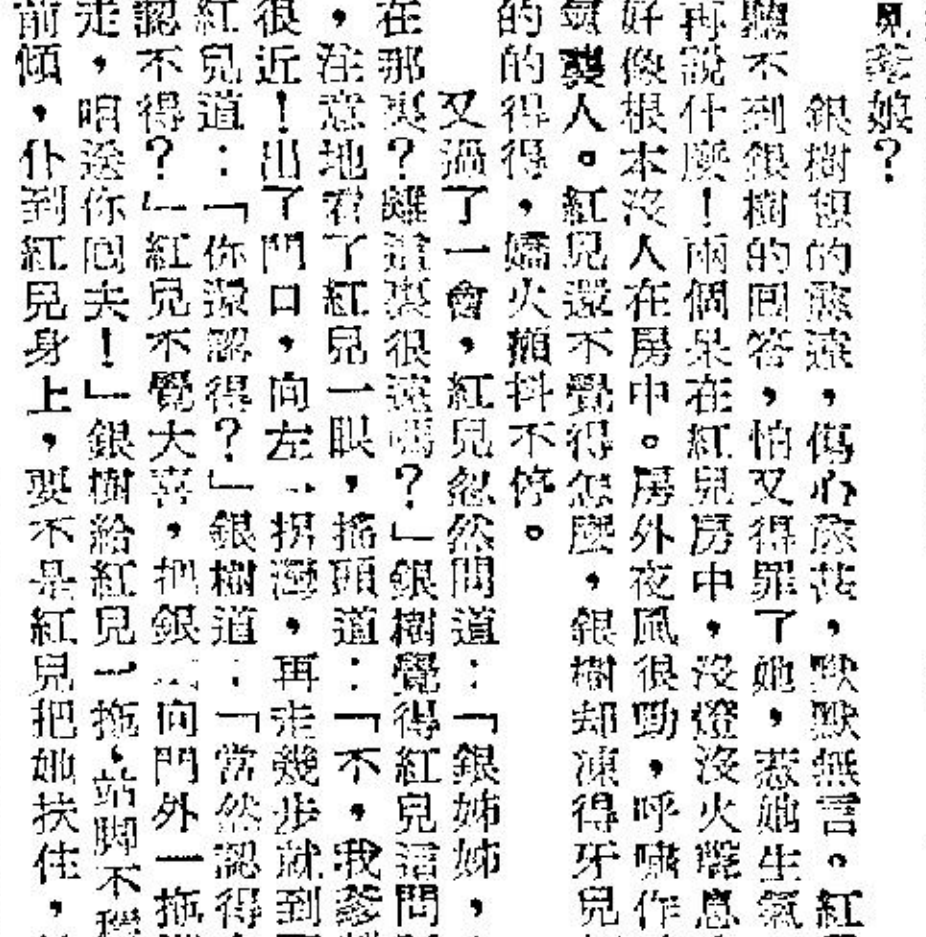 見爹娘?
銀樹想的愈遠,傷心愈甚,默默無言。紅
聽不到銀樹的回答,怕又得罪了她,惹她生氣
再說什麼!兩個呆在紅兒房中,沒燈沒火聲息
好像根本沒人在房中。房外夜風很勁,呼嘯作
氣襲人。紅兒還不覺得怎麼,銀樹却凍得牙兒
的的得得,嬌火顫抖不停。
又過了一會,紅兒忽然問道:「銀姊姊,
在那裏?離這裏很遠嗎?」銀樹覺得紅兒這問
,注意地看了紅兒一眼,搖頭道:「不,我爹
很近!出了門口,向左一拐彎,再走幾步就到
紅兒道:「你還認得?」銀樹道:「當然認得
認不得?」紅兒不覺大喜,把銀 向門外一拖
走,咱送你回去!」銀樹給紅兒一拖,站脚不穩
前傾,仆到紅兒身上,要不是紅兒把她扶住,